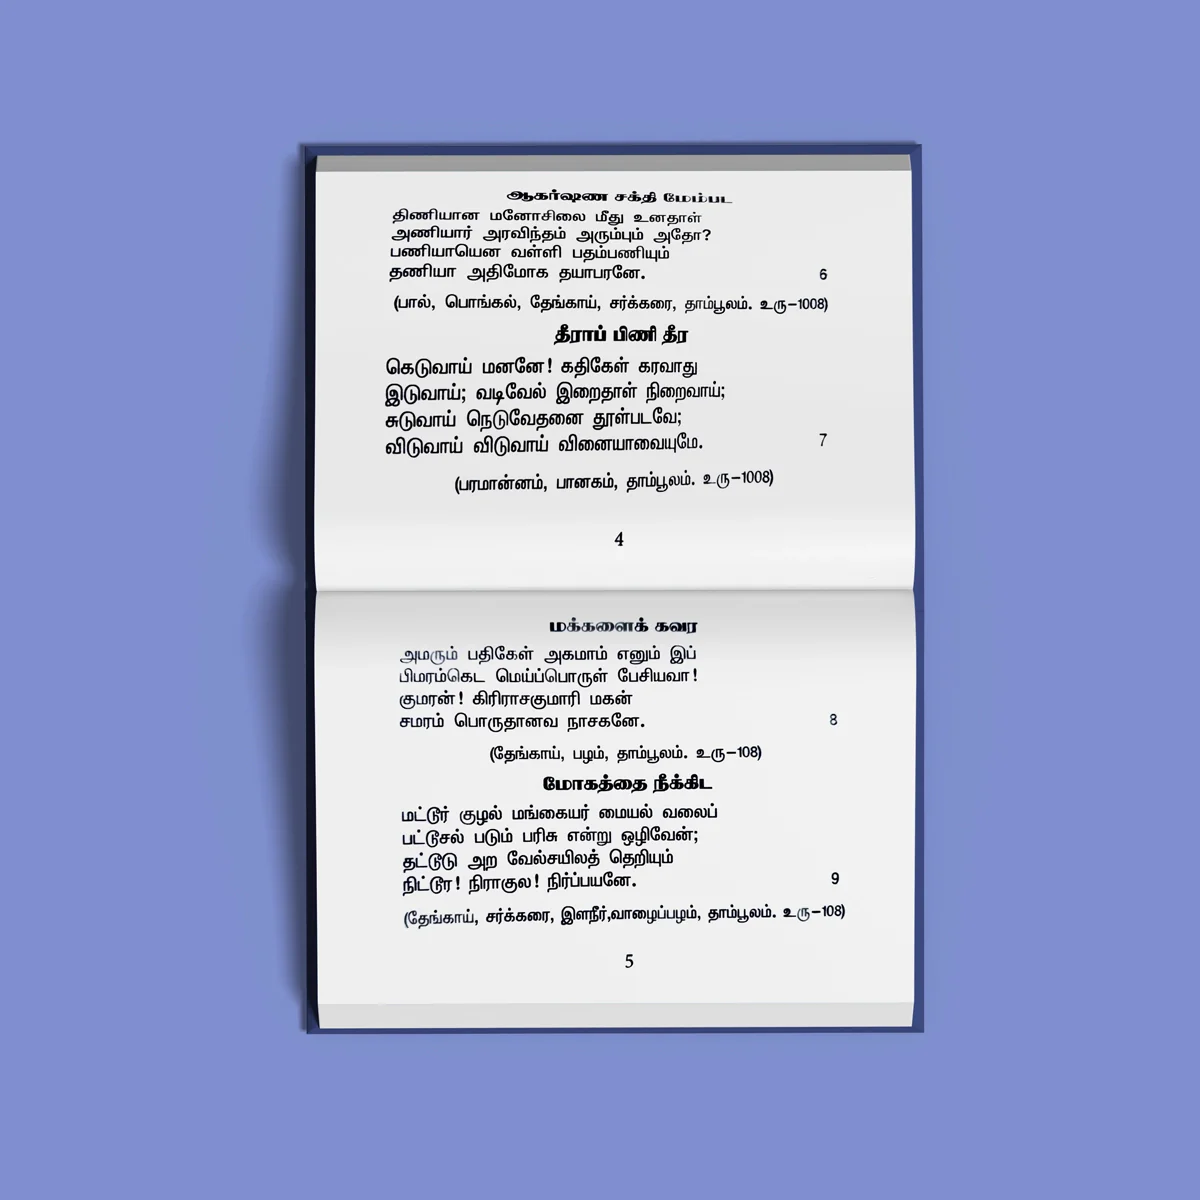 ஆகர்ஷண சக்தி மேம்பட
திணியான மனோசிலை மீது உனதாள்
அணியார் அரவிந்தம் அரும்பும் அதோ?
பணியாயென வள்ளி பதம்பணியும்
தணியா அதிமோக தயாபரனே. 6
(பால், பொங்கல், தேங்காய், சர்க்கரை, தாம்பூலம். உரு-1008)
தீராப் பிணி தீர
கெடுவாய் மனனே! கதிகேள் கரவாது
இடுவாய்; வடிவேல் இறைதாள் நிறைவாய்;
சுடுவாய் நெடுவேதனை தூள்படவே;
விடுவாய் விடுவாய் வினையாவையுமே. 7
(பரமான்னம், பானகம், தாம்பூலம். உரு-1008)
4
மக்களைக் கவர
அமரும் பதிகேள் அகமாம் எனும் இப்
பிமரம்கெட மெய்ப்பொருள் பேசியவா!
குமரன்! கிரிராசகுமாரி மகன்
சமரம் பொருதானவ நாசகனே. 8
(தேங்காய், பழம், தாம்பூலம். உரு-108)
மோகத்தை நீக்கிட
மட்டூர் குழல் மங்கையர் மையல் வலைப்
பட்டூசல் படும் பரிசு என்று ஒழிவேன்;
தட்டூடு அற வேல்சயிலத் தெறியும்
நிட்டூர! நிராகுல! நிர்ப்பயனே. 9
(தேங்காய், சர்க்கரை, இளநீர்,வாழைப்பழம், தாம்பூலம். உரு-108)
5